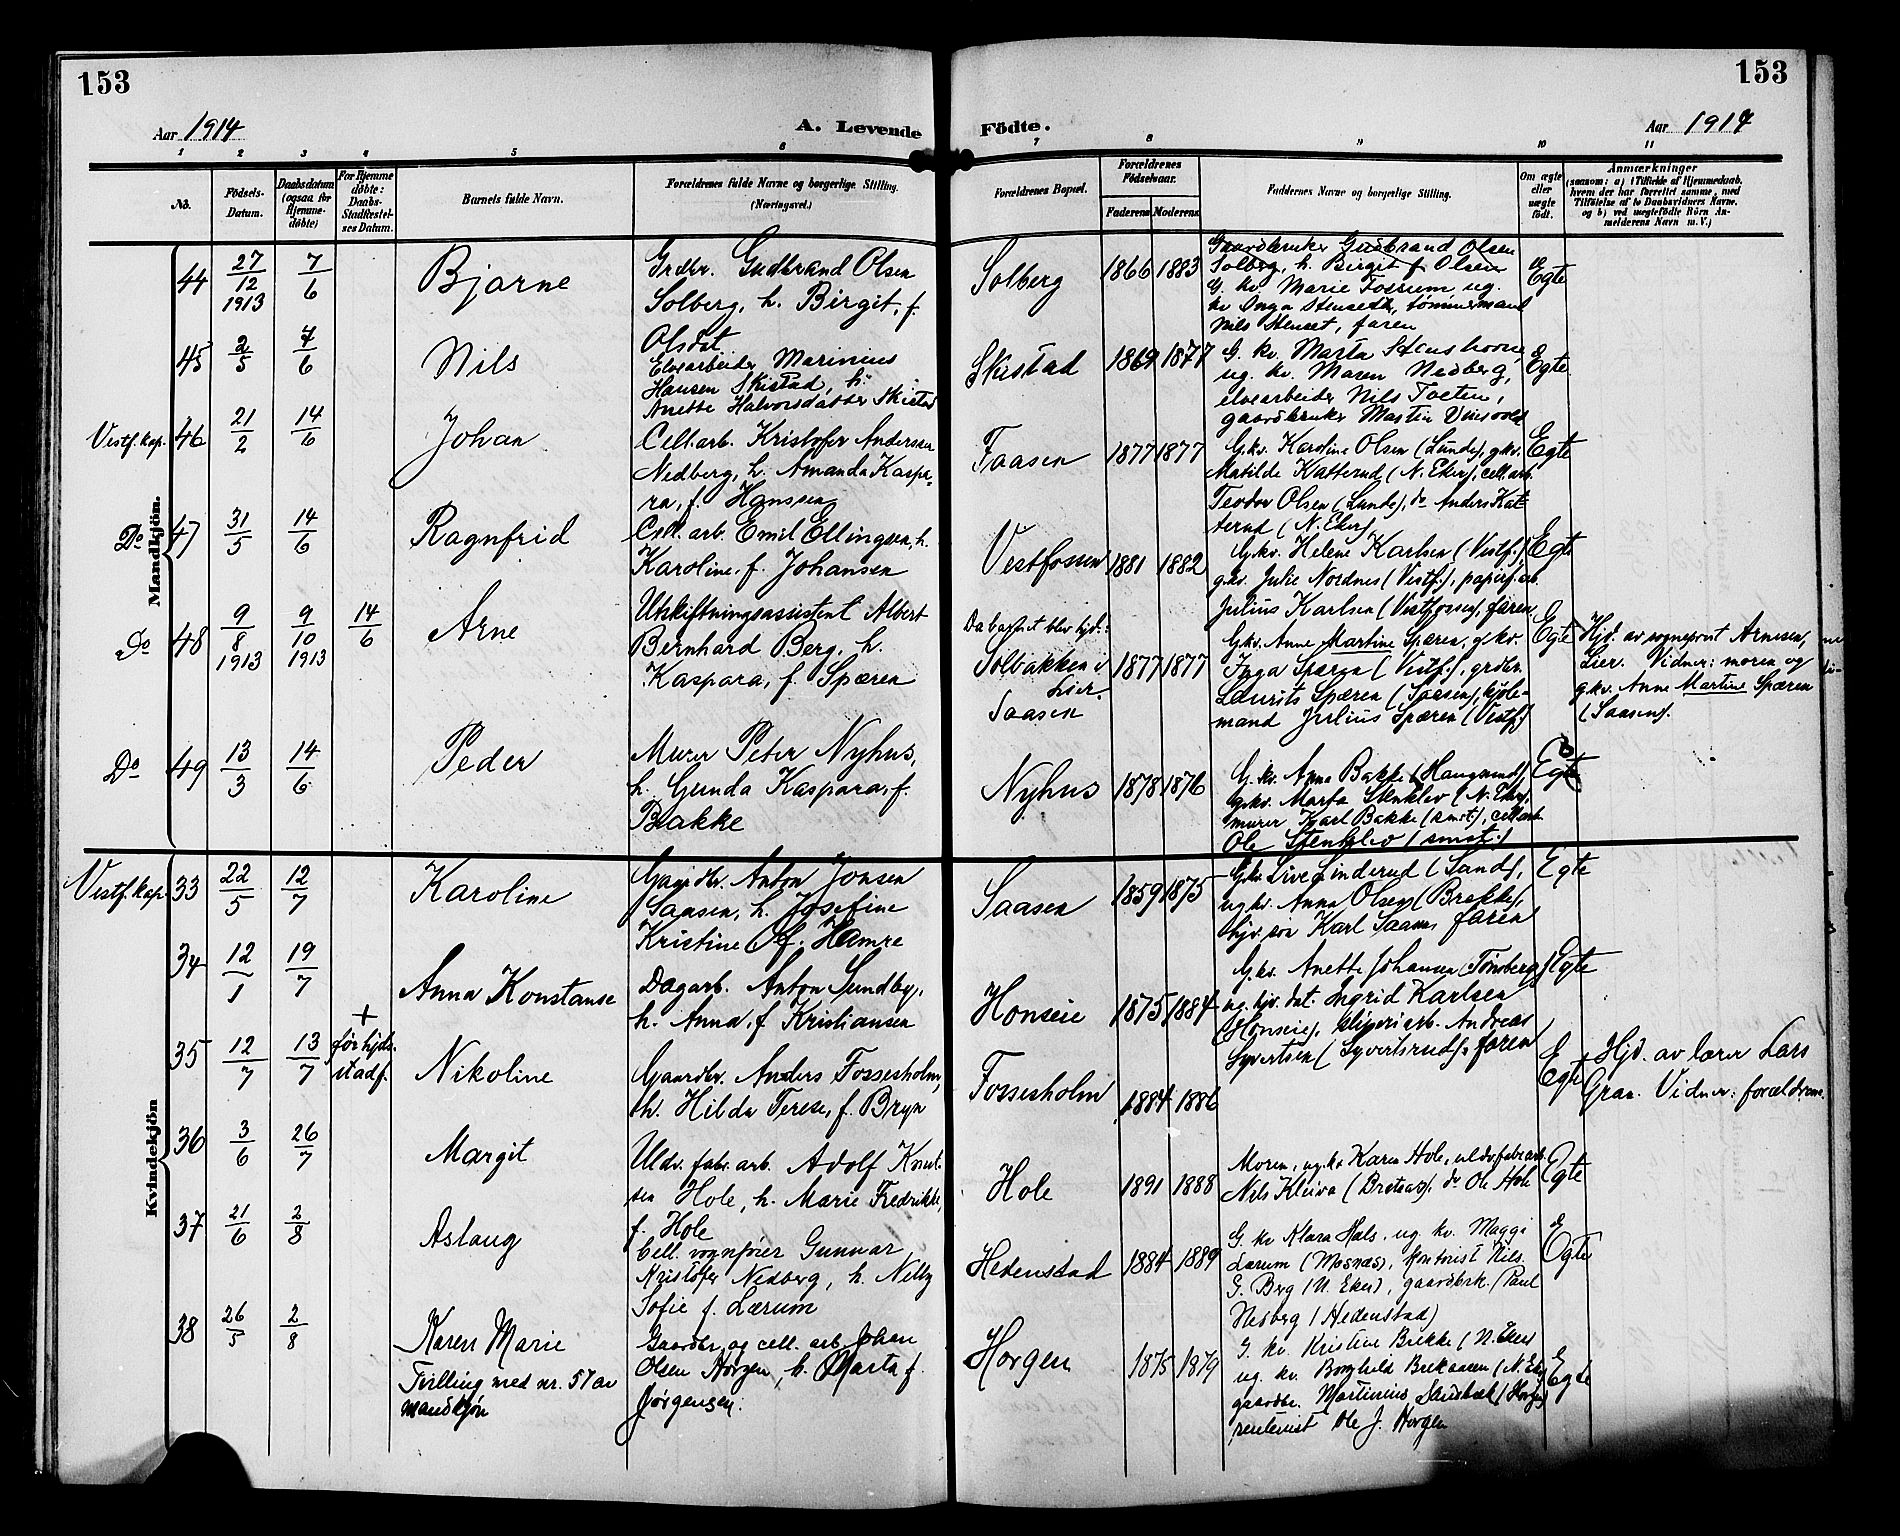 153
153
Aar 1914
A. Levende
Födte.
Aar 1914
1 2 3 4 5 6 7 8 9 10 11
No.
Födsels-
Datum.
Daabsdatum
(ogsaa for
Hjemme-
döbte)
For Hjemme
döbte:
Daabs-
Stadfæstel-
ses Datum.
Barnets fulde Navn.
Forældrenes fulde Navne og borgerlige Stilling.
(Næringsvei.)
Forældrenes Bopæl.
Forældrenes
Födselsaar.
Faderens Moderens
Faddernes Navne og borgerlige Stilling.
Om ægte
eller
uægte
födt.
Anmærkninger
(saasom: a) i Tilfælde af Hjemmedaab,
hvem der har forrettet samme, med
Tilföielse af to Daabsvidners Navne,
og b) ved uægtefödte Börn An-
melderens Navn m. V.)
Mandkjön.
44
27/12
1913
7/6
Bjarne
Grdbr. Gudbrand Olsen
Solberg, h. Birgit, f.
Olsdat
Solberg
1866 1883
Gaardbruker Gudbrand Olsen
Solberg, h. Birgit f. Olsen
G. kv. Marie Fossum, ug.
kv Inga Stenseth, tømmermand
Nils Stenset, faren
Egte
45
2/5
7/6
Nils
Elvearbeider Marinius
Hansen Skistad, h.
Anette Halvorsdatter Skistad
Skistad
1869 1877
G. kv. Marta
ug. kv. Maren Nedberg,
elvearbeider Nils Toeten,
gaardbruker Martin
Egte
Vestf. kap.
46
21/2
14/6
Johan
Cell.arb. Kristofer Andersen
Nedberg, h. Amanda Kaspa-
ra, f. Hansen
Faasen
1877 1877
G.kv. Karoline Olsen (Lunde), g.kv.
Matilde Katterud (N. Eker), cell.arb.
Teodor Olsen (Lunde), do Anders Kat-
terud (N. Eker)
Egte
Do
47
31/5
14/6
Ragnfrid
Cell. arb. Emil Ellingsen, h.
Karoline, f. Johansen
Vestfossen
1881 1882
G.kv. Helene Karlsen (Vestf.),
g.kv. Julie Nordnes (Vestf.), papirf.arb.
Julius Karlsen (Vestfossen), faren
Egte
Do
48
9/8
1913
9/10
1913
14/6
Arne
Utskiftningsassistent Albert
Bernhard Berg, h.
Kaspara, f. Spæren
Da barnet blev hjd.:
Solbakken i
Lier.
Saasen
1877 1877
G.kv. Anne Martine Spæren, g.kv.
Inga Spæren (Vestf.), grdbr.
Laurits Spæren (Saasen), hjule-
mand Julius Spæren (Vestf.)
Egte
Hjd. av sogneprest Arnesen,
Lier. Vidner: moren og
g.kv. Anne Martine Spæren
(Saasen).
Do
49
13/3
14/6
Peder
Murer Peter Nyhus,
h. Gunda Kaspara, f.
Bakke
Nyhus
1878 1876
G.kv. Anna Bakke (Haugsund),
g.kv. Marta Stenklev (N. Eker),
murer Karl Bakke (smst.), cell.arb.
Ole Stenklev (smst.)
Egte
Kvindekjön
Vestf. kap.
33
22/5
12/7
Karoline
Gaardbr. Anton Jonsen
Saasen, h. Josefine
Kristine O. f. Hamre
Saasen
1859 1875
G.kv. Live Linderud (Sand),
ug.kv. Anna Olsen (Brekke),
hjv. søn Karl Saasen, faren
Egte
34
12/1
19/7
Anna Konstanse
Dagarb. Anton Sundby,
h. Anna, f. Kristiansen
Honseie
1875 1884
G.kv. Anette Johansen (Tønsberg),
ug. hjv. dat. Ingrid Karlsen
(Honseie), sliperiarb. Andreas
Syvertsen (Syvertsrud), faren
Egte
35
12/7
13/7
+
før hjds.
stadf.
Nikoline
Gaardbr. Anders Fossesholm,
h. Hilda Terese, f. Bryn
Fossesholm
1884 1886
Egte
Hjd. av lærer Lars
Graa. Vidner: forældrene
36
3/6
26/7
Margit
Uldv. fabr. arb. Adolf Knut-
sen Hole, h. Marie Fredrikke,
f. Hole
Hole
1891 1888
Moren, ug.kv Karen Hole, uldv.fabr.arb.
Nils Kleiva (Bretaas), do Ole Hole
Egte
37
21/6
2/8
Aslaug
Cell. vognfører Gunnar
Kristofer Nedberg, h. Nelly
Sofie f. Lærum
Hedenstad
1884 1889
G. kv Klara Hals, ug. kv. Maggi
Lærum (Mosnæs), kontorist Nils
G. Berg (N. Eker), gaardbrk. Paul
Nedberg (Hedenstad)
Egte
38
26/5
2/8
Karen Marie
Tvilling med nr. 57 av
mandkjøn
Gaardbr. og cell. arb. Johan
Olsen Horgen, h. Marta f.
Jørgensen.
Horgen
1875 1879
G. kv. Kristine Brekke (N. Eker)
ug. kv. Borghild Brekaasen (N. Eker)
gaardbr. Martinius Sandbæk (Horgen)
rentenist Ole J. Horgen
Egte